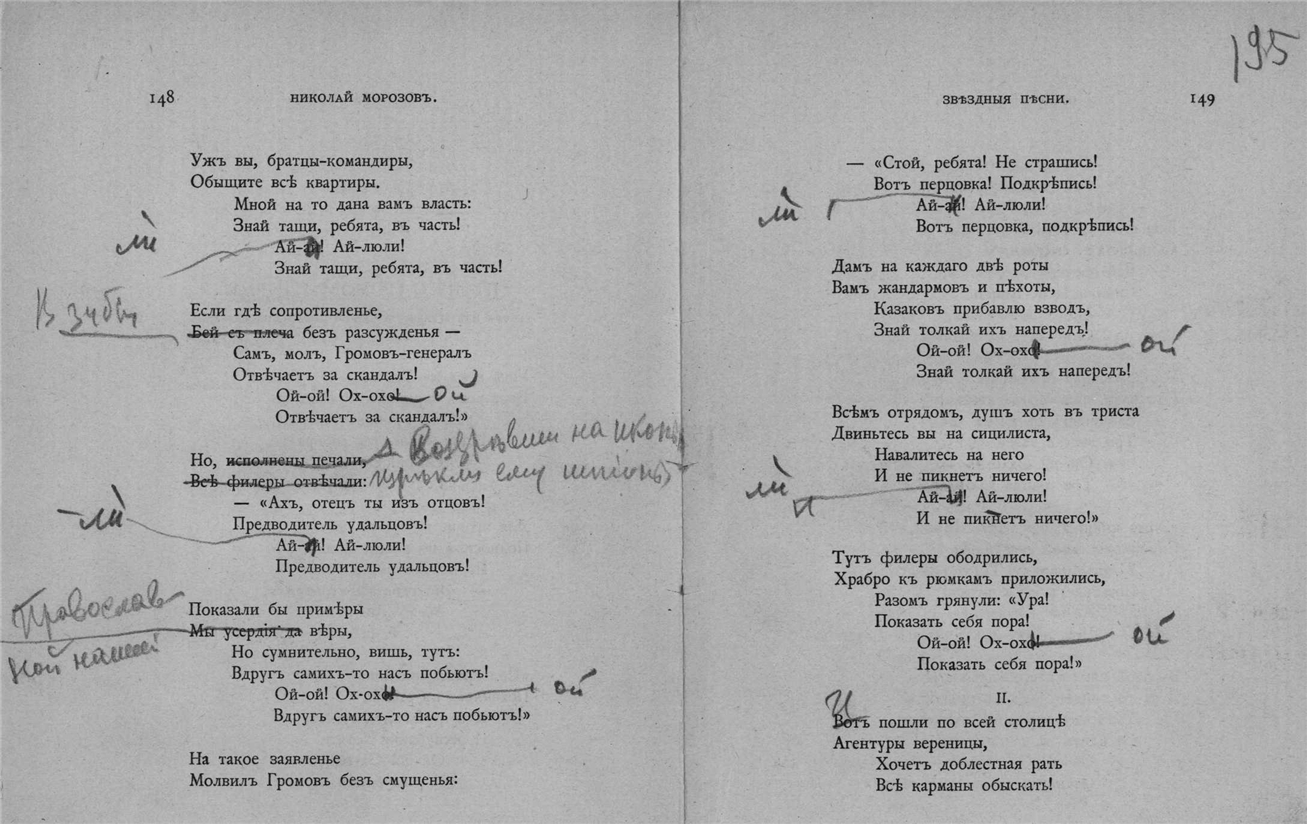 195
148 НИКОЛАЙ МОРОЗОВЪ.
Ужъ вы, братцы-командиры,
Обыщите всѣ квартиры.
Мной на то дана вамъ власть:
Знай тащи, ребята, въ часть!
ли
Ай-ай! Ай-люли!
Знай тащи, ребята, въ часть!
Если гдѣ сопротивленье,
В зубы
Бей съ плеча безъ разсужденья —
Самъ, молъ, Громовъ-генералъ
Отвѣчаетъ за скандалъ!
Ой-ой! Ох-охо! ой
Отвѣчаетъ за скандалъ!»
Но, исполнены печали, Воззрѣвши на
Всѣ филеры отвѣчали: ему
— «Ахъ, отецъ ты изъ отцовъ!
Предводитель удальцовъ!
ли
Ай-ай! Ай-люли!
Предводитель удальцовъ!
Показали бы примѣры
Православ
Мы усердія да вѣры,
ной нашей
Но сумнительно, вишь, тутъ:
Вдругъ самихъ-то насъ побьютъ!
Ой-ой! Ох-охо! ой
Вдругъ самихъ-то насъ побьютъ!»
На такое заявленье
Молвилъ Громовъ безъ смущенья:
ЗВѢЗДНЫЯ ПѢСНИ. 149
— «Стой, ребята! Не страшись!
Вотъ перцовка! Подкрѣпись!
ли
Ай-ай! Ай-люли!
Вотъ перцовка, подкрѣпись!
Дамъ на каждаго двѣ роты
Вамъ жандармовъ и пѣхоты,
Казаковъ прибавлю взводъ,
Знай толкай ихъ напередъ!
Ой-ой! Ох-охо! ой
Знай толкай ихъ напередъ!
Всѣмъ отрядомъ, душъ хоть въ триста
Двиньтесь вы на сицилиста,
Навалитесь на него
И не пикнетъ ничего!
ли
Ай-ай! Ай-люли!
И не пикнетъ ничего!»
Тутъ филеры ободрились,
Храбро къ рюмкамъ приложились,
Разомъ грянули: «Ура!
Показать себя пора!
Ой-ой! Ох-охо! ой
Показать себя пора!»
II.
И
Вотъ пошли по всей столицѣ
Агентуры вереницы,
Хочетъ доблестная рать
Всѣ карманы обыскать!